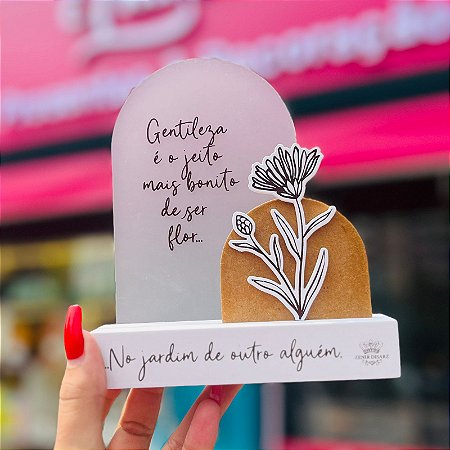 Gentileza
é o jeito
mais bonito
de ser
flor...
...No jardim de outro alguém.